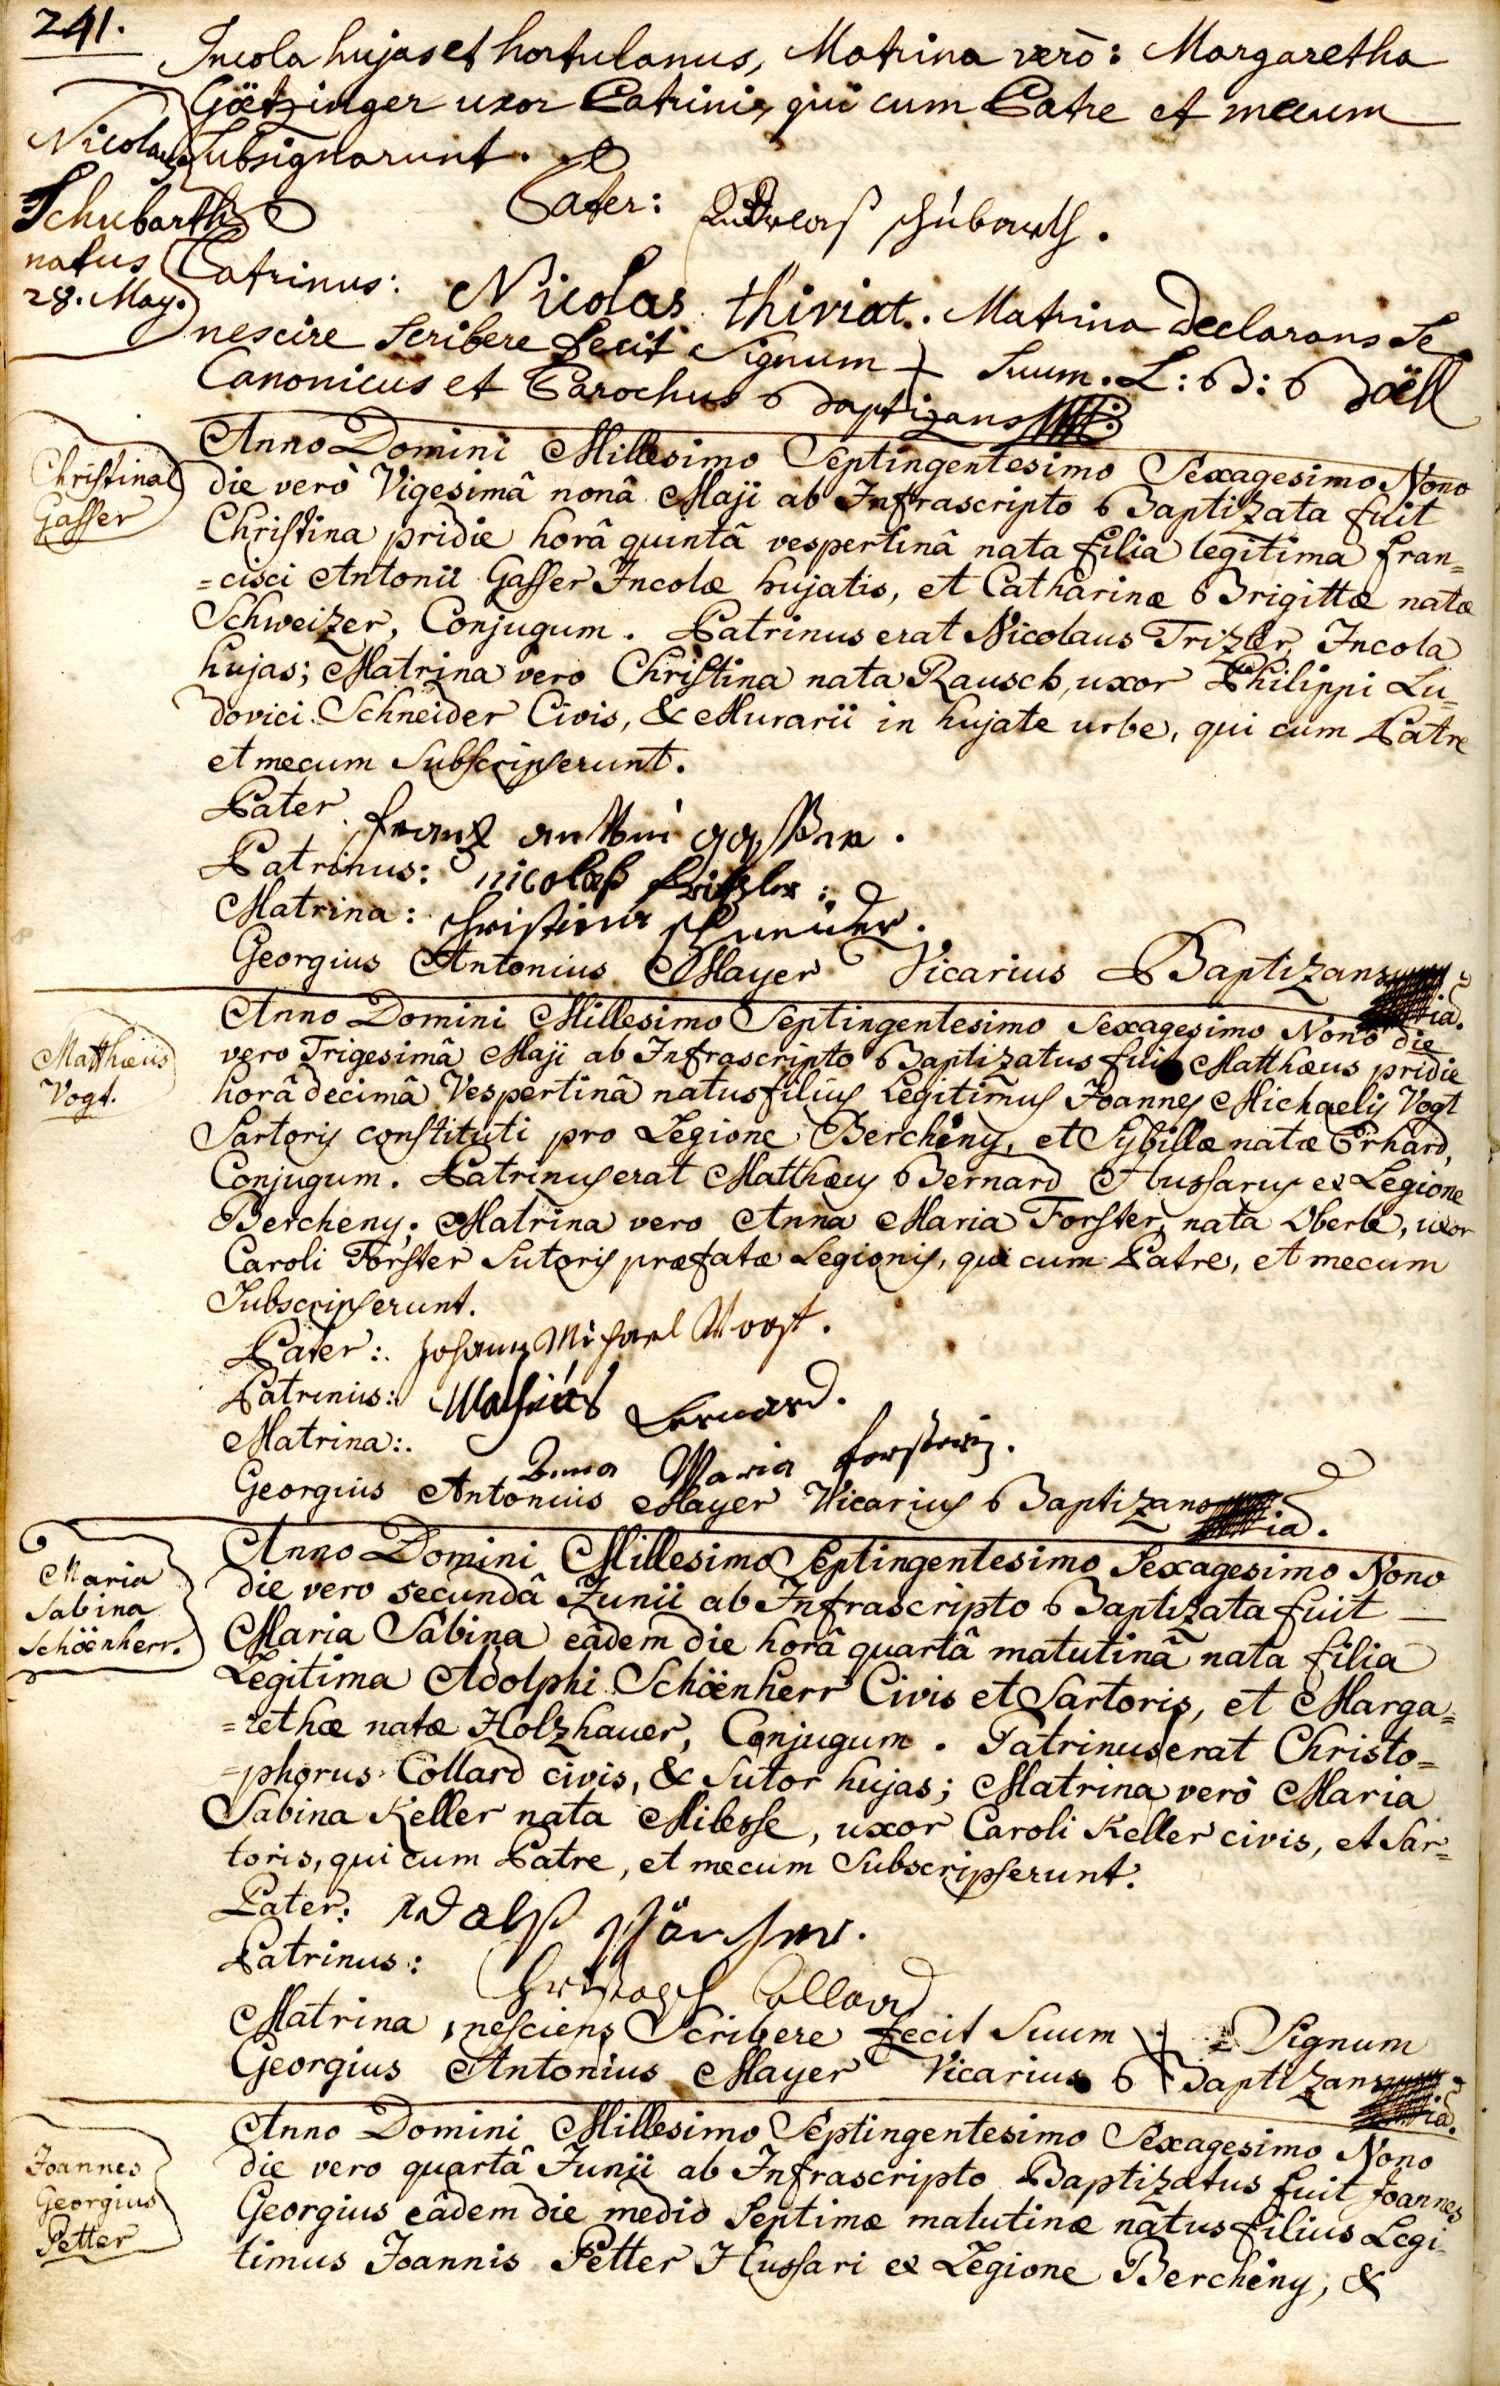 241.
Incola hujas et hortulanus, Matrina verò: Margaretha
Göetzinger uxor Patrini, qui cum Patre et mecum
Subsignarunt.
Nicolaus
Schubarth
natus
28. May.
Pater: Andreas schubarth.
Patrinus: Nicolas thiriat. Matrina declarans Se
nescire Scribere fecit Signum + Suum. L: B: Böell
Canonicus et Parochus Baptizans
Christina
Gasser
Anno Domini Millesimo Septingentesimo Sexagesimo Nono
die verò Vigesimâ nonâ Maji ab Infrascripto Baptizata fuit
Christina pridie horâ quintâ vespertinâ nata filia legitima Fran=
=cisci Antonii Gasser Incolæ hujatis, et Catharinæ Brigittæ natæ
Schweizer, Conjugum. Patrinus erat Nicolaus Trizler, Incola
hujas; Matrina vero Christina nata Rausch, uxor Philippi Lu=
dovici Schneider Civis, & Murarii in hujate urbe, qui cum Patre
et mecum Subscripserunt.
Pater. frantz anthoni gasser.
Patrinus: nicolas tritzler:
Matrina: christina schneider.
Georgius Antonius Mayer Vicarius Baptizans
Matthæus
Vogt.
Anno Domini Millesimo Septingentesimo Sexagesimo Nono die
vero Trigesimâ Maji ab Infrascripto Baptizatus fuit Matthæus pridie
horâ decimâ Vespertinâ natus filius Legitimus Joannes Michaelis Vogt
Sartoris constituti pro Legione Berchény, et Sybillæ natæ Erhard,
Conjugum. Patrinus erat Matthæus Bernard Hussarus ex Legione
Bercheny; Matrina vero Anna Maria Forster, nata Oberle, uxor
Caroli Forster Sutoris præfatæ Legionis, qui cum Patre, et mecum
Subscripserunt.
Pater: Johann Michael Voogt.
Patrinus: Mathias Bernard.
Matrina: Anna Maria forsterin.
Georgius Antonius Mayer Vicarius Baptizans
Maria
Sabina
Schöenherr.
Anno Domini Millesimo Septingentesimo Sexagesimo Nono
die vero secundâ Junii ab Infrascripto Baptizata fuit —
Maria Sabina eâdem die horâ quartâ matutinâ nata filia
Legitima Adolphi Schöenherr Civis et Sartoris, et Marga=
=rethæ natæ Holzhauer, Conjugum. Patrinus erat Christo=
=phorus Collard civis, & Sutor hujas; Matrina verò Maria
Sabina Keller nata Milesse, uxor Caroli Keller civis, et Sar=
toris, qui cum Patre, et mecum Subscripserunt.
Pater: Adolf schönherr.
Patrinus: Christoph Collard
Matrina nesciens Scribere fecit Suum + = Signum
Georgius Antonius Mayer Vicarius Baptizans
Joannes
Georgius
Petter
Anno Domini Millesimo Septingentesimo Sexagesimo Nono
die vero quartâ Junii ab Infrascripto Baptizatus fuit Joannes
Georgius eâdem die medio Septimæ matutinæ natus filius Legi=
timus Joannis Petter Hussari ex Legione Berchény, &